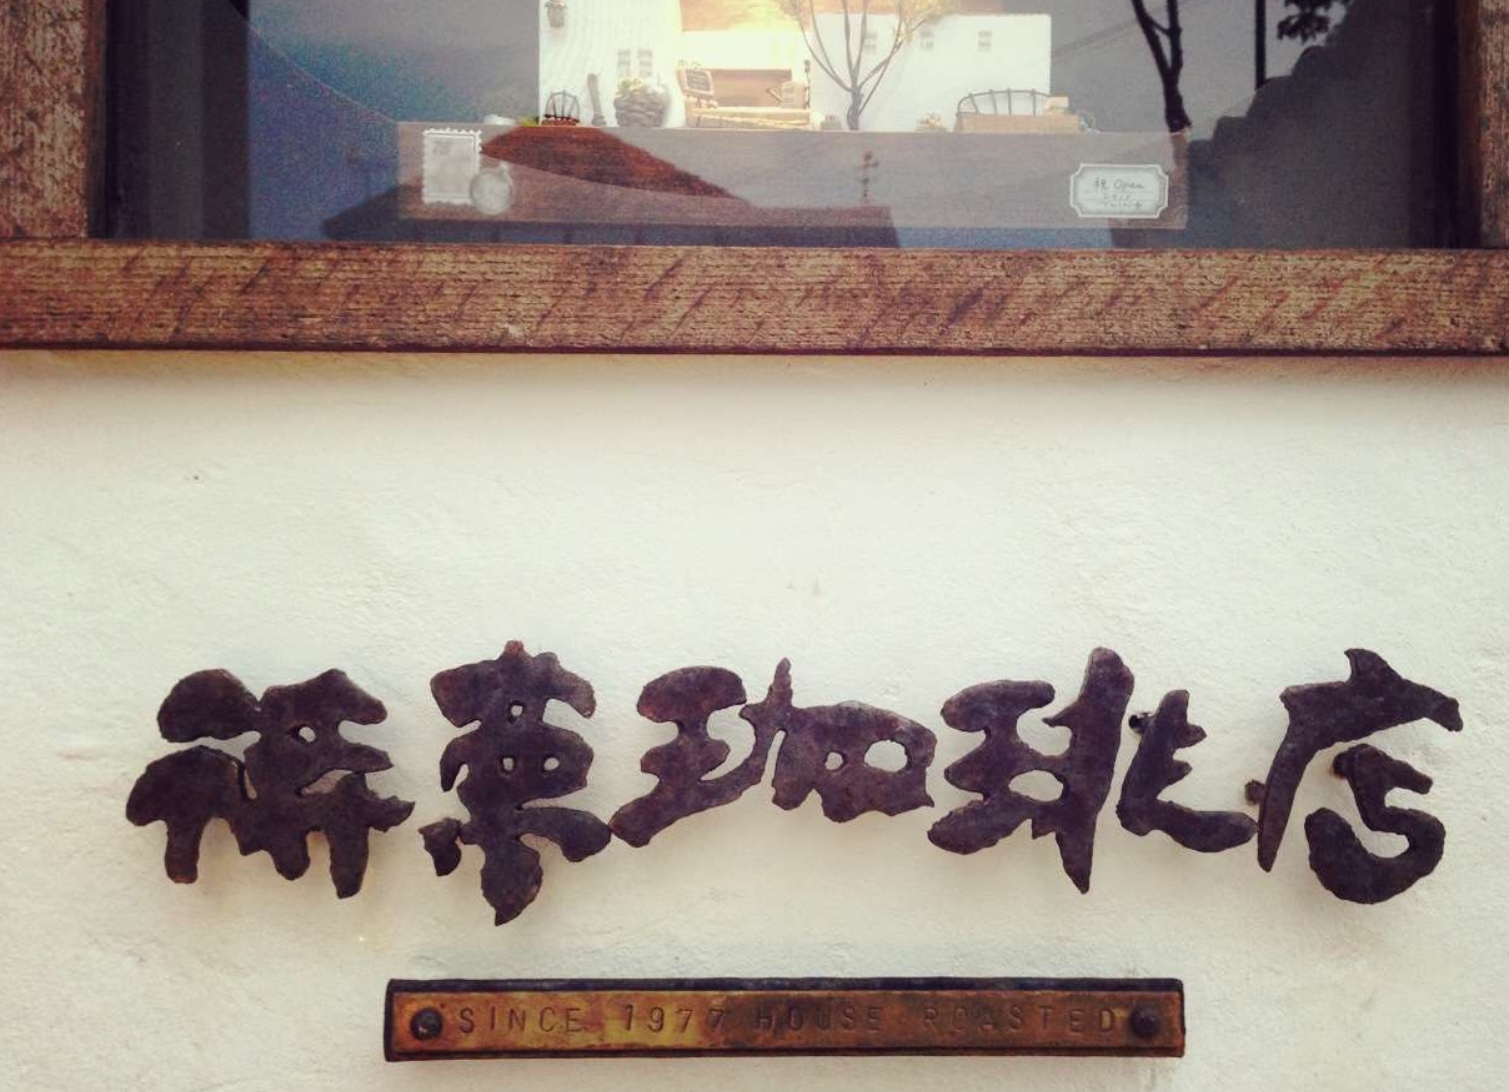 祝 Open
珈琲店
SINCE 1977 HOUSE ROASTED